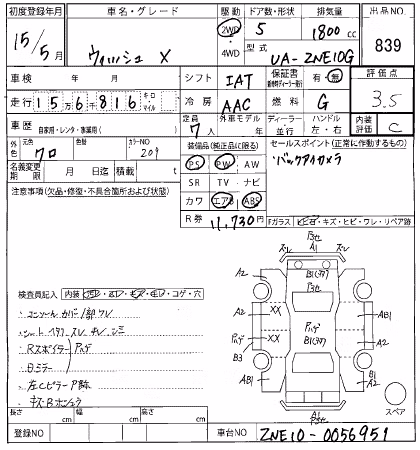 初度登録年月 車名・グレード 駆動 ドア数・形状 排気量 出品NO
15/5月 ウィッシュ X 2WD・4WD 5 1800cc 839
型式 UA-ZNE10G
車検 年 月 シフト IAT 保証書 有・無 評価点 3.5
走行 15万6千816キロ・マイル 冷房 AAC 燃料 G
車歴 自家用・レンタ・事業用( ) 定員 7人 外車モデル 年 ディーラー・並行 ハンドル 左・右 内装評価 C
外色 元色 クロ 色替 カラーNO 209
装備品(純正品に限る) セールスポイント(正常に作動するもの)
PS PW AW バックアイカメラ
SR TV ナビ
カワ エアB ABS
名義変更期限 月 日迄 積載 t
R券 11,730円 Fガラス トビ石・キズ・ヒビ・ワレ・リペア跡
注意事項(欠品・修復・不具合箇所および状態)
検査員記入 内装 コゲ・穴
・コンソールカバー1部ワレ
・シート ヘタリ スレ キレ シミ
・Rスポイラー アハゲ
・Bミラー
・左Cピラー P跡
・キズ・Bホンシュウ
スレ スレ
B1
A2 A2
XX XX
AB1
B3
B1
A2
AB1
A1
スペア
長さ cm 幅 cm 高さ cm
登録NO 車台NO ZNE10-0056951